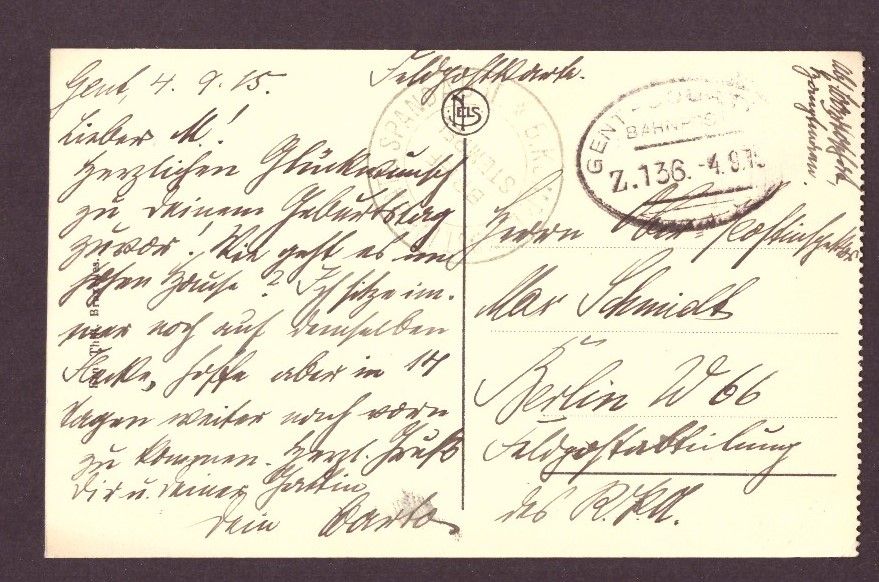 Gent, 4. 9. 15.
Feldpostkarte.
Lieber M.!
Herzlichen Glückwunsch
zu Deinem Geburtstag
zuvor! Wie geht es im
hohen Hause? Ich sitze im-
mer noch auf demselben
Flecke, hoffe aber in 14
Tagen weiter nach vorn
zu kommen. Herzl. Gruß
Dir u. Deiner Gattin
Dein
NELS
GENT
BAHNPOST
Z.136. -4.9.15
Herrn Ober-Postinspektor
Max Schmidt
Berlin W 66
Feldpostabteilung
des R.P.A.
Ern. Thill, Bruxelles.